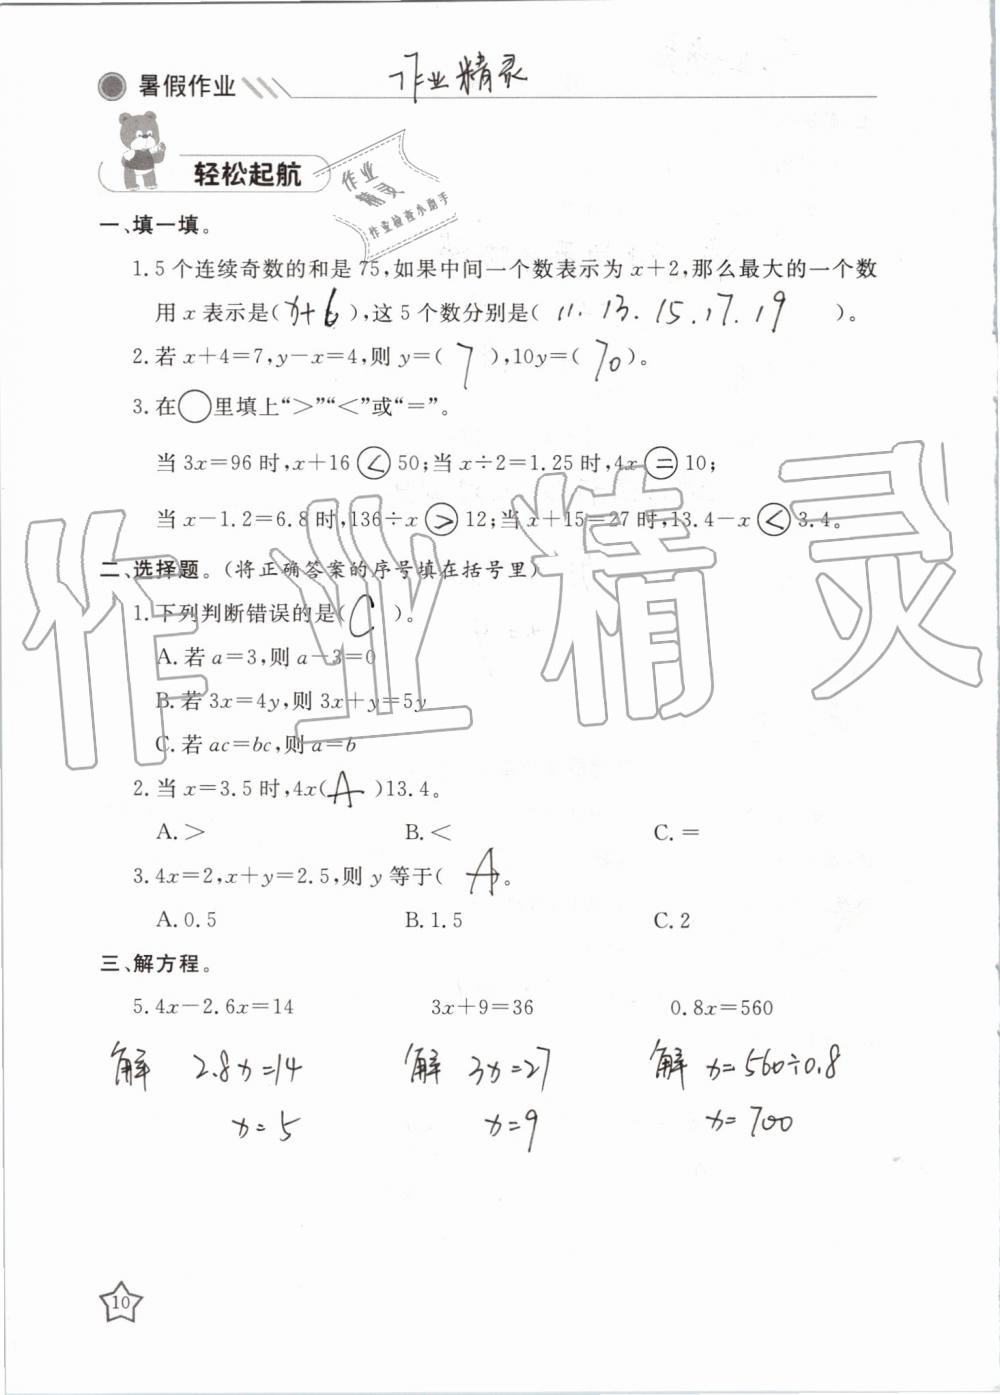 暑假作业
作业精灵
轻松起航
作业
精灵
作业检查小助手
一、填一填。
1.5个连续奇数的和是75,如果中间一个数表示为x+2,那么最大的一个数
用x表示是(x+6),这5个数分别是( 11.13.15.17.19 )。
2.若x+4=7,y-x=4,则y=( 7 ),10y=( 70 )。
3.在○里填上“>”“<”或“=”。
当3x=96时,x+16<50;当x÷2=1.25时,4x=10;
当x-1.2=6.8时,136÷x>12;当x+15=27时,13.4-x<3.4。
二、选择题。(将正确答案的序号填在括号里)
1.下列判断错误的是( C )。
A.若a=3,则a-3=0
B.若3x=4y,则3x+y=5y
C.若ac=bc,则a=b
2.当x=3.5时,4x( A )13.4。
A.> B.< C.=
3.4x=2,x+y=2.5,则y等于( A 。
A.0.5 B.1.5 C.2
三、解方程。
5.4x-2.6x=14 3x+9=36 0.8x=560
解 2.8x=14 解 3x=27 解 x=560÷0.8
x=5 x=9 x=700
10
作业精灵